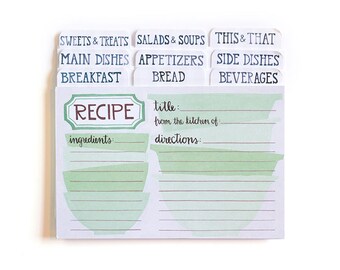 SWEETS & TREATS SALADS & SOUPS THIS & THAT
MAIN DISHES APPETIZERS SIDE DISHES
BREAKFAST BREAD BEVERAGES
RECIPE
title:
from the kitchen of:
ingredients:
directions: